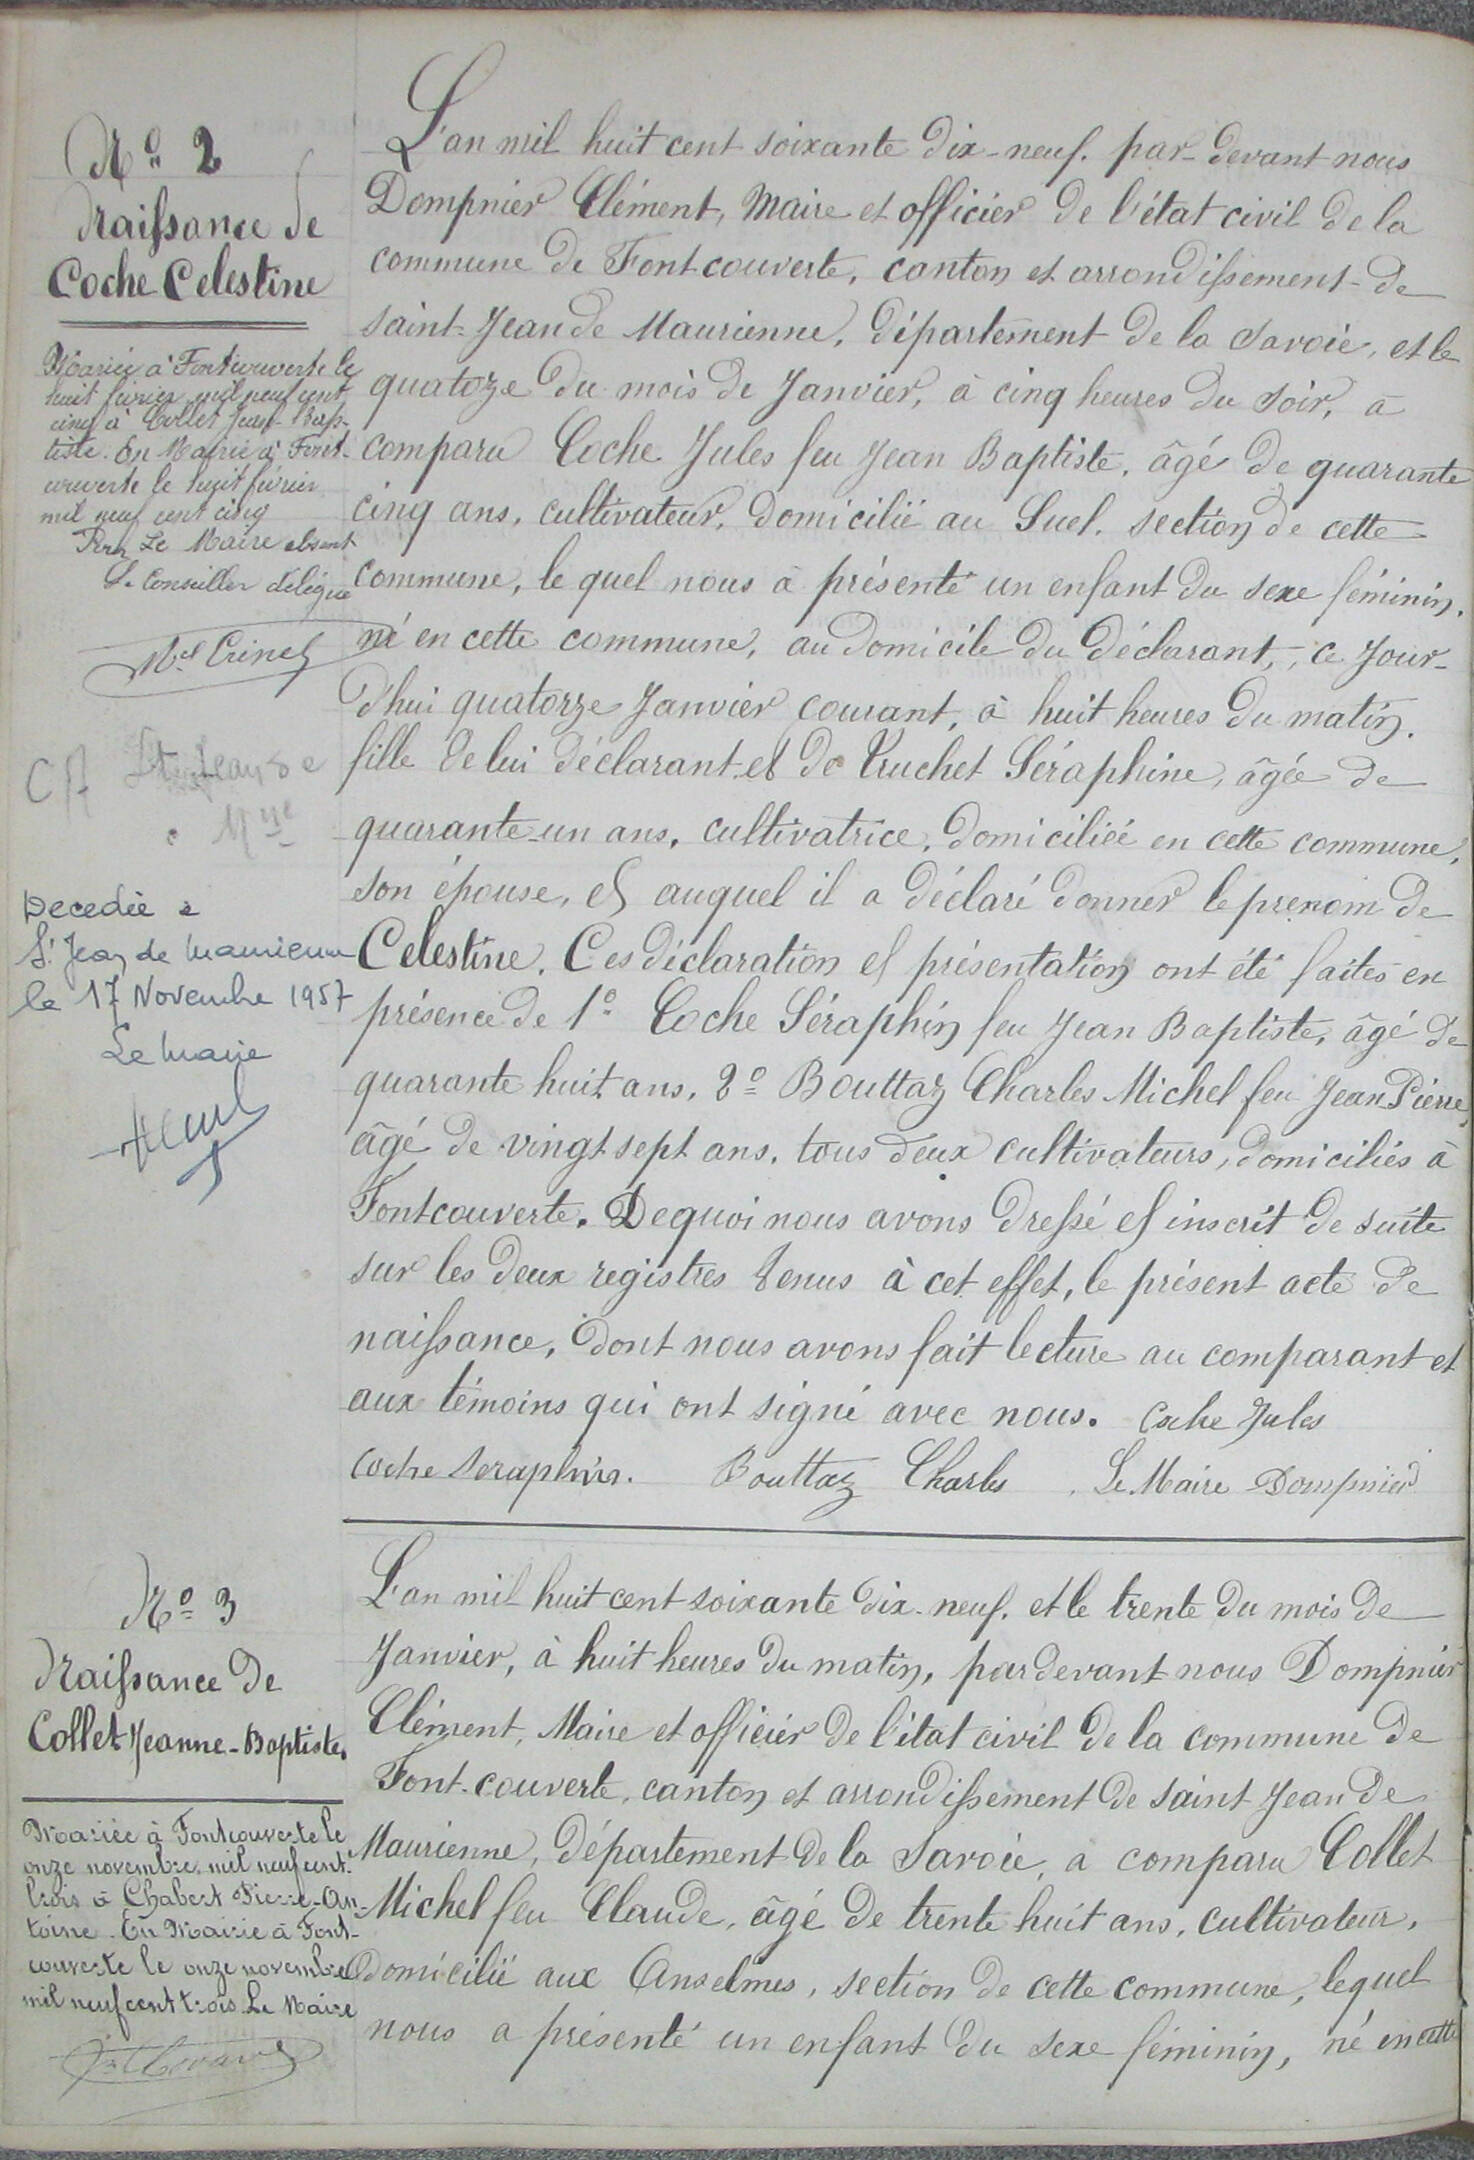 Nº 2
Naissance de
Coche Celestine
Mariée à Fontcouverte le
huit février mil neuf cent
cinq à Collet Jean-Bap-
tiste. En Mairie à Font-
couverte le huit février
mil neuf cent cinq
Pour Le Maire absent
Le Conseiller délégué
St Jean de
Décedée à
St Jean de Maurienne
le 17 Novembre 1957
Le Maire
L'an mil huit cent soixante dix-neuf. par-devant nous
Dompnier Clément, Maire et officier de l'état civil de la
commune de Fontcouverte, canton et arrondissement de
saint-Jean de Maurienne, département de la Savoie, et le
quatoze du mois de Janvier, à cinq heures du soir, a
comparu Coche Jules feu Jean Baptiste, âgé de quarante
cinq ans, cultivateur, domicilié au Suel, section de cette
commune, le quel nous à présenté un enfant du sexe féminin,
né en cette commune, au domicile du déclarant, ce jour-
d'hui quatorze Janvier courant, à huit heures du matin.
fille de lui déclarant et de Truchet Séraphine, âgée de
quarante-un ans, cultivatrice, domiciliée en cette commune,
son épouse, et auquel il a déclaré donner le prenom de
Celestine. Ces déclaration et présentation ont été faites en
présence de 1º Coche Séraphin feu Jean Baptiste, âgé de
quarante huit ans, 2º Bouttaz Charles Michel feu Jean Pierre,
âgé de vingt sept ans, tous deux cultivateurs, domiciliés à
Fontcouverte. De quoi nous avons dressé et inscrit de suite
sur les deux registres tenus à cet effet, le présent acte de
naissance, dont nous avons fait lecture au comparant et
aux témoins qui ont signé avec nous. Coche Jules
Coche Seraphin. Bouttaz Charles. Le Maire Dompnier
Nº 3
Naissance de
Collet Jeanne-Baptiste.
Mariée à Fontcouverte le
onze novembre mil neuf cent
trois à Chabert Pierre-An-
toine. En Mairie à Font-
couverte le onze novembre
mil neuf cent trois. Le Maire
L'an mil huit cent soixante dix-neuf. et le trente du mois de
Janvier, à huit heures du matin, par devant nous Dompnier
Clément, Maire et officier de l'état civil de la commune de
Font-couverte, canton et arrondissement de saint Jean de
Maurienne, département de la Savoie, a comparu Collet
Michel feu Claude, âgé de trente huit ans, cultivateur,
domicilié aux Anselmes, section de cette commune, lequel
nous a présenté un enfant du sexe féminin, né en cette